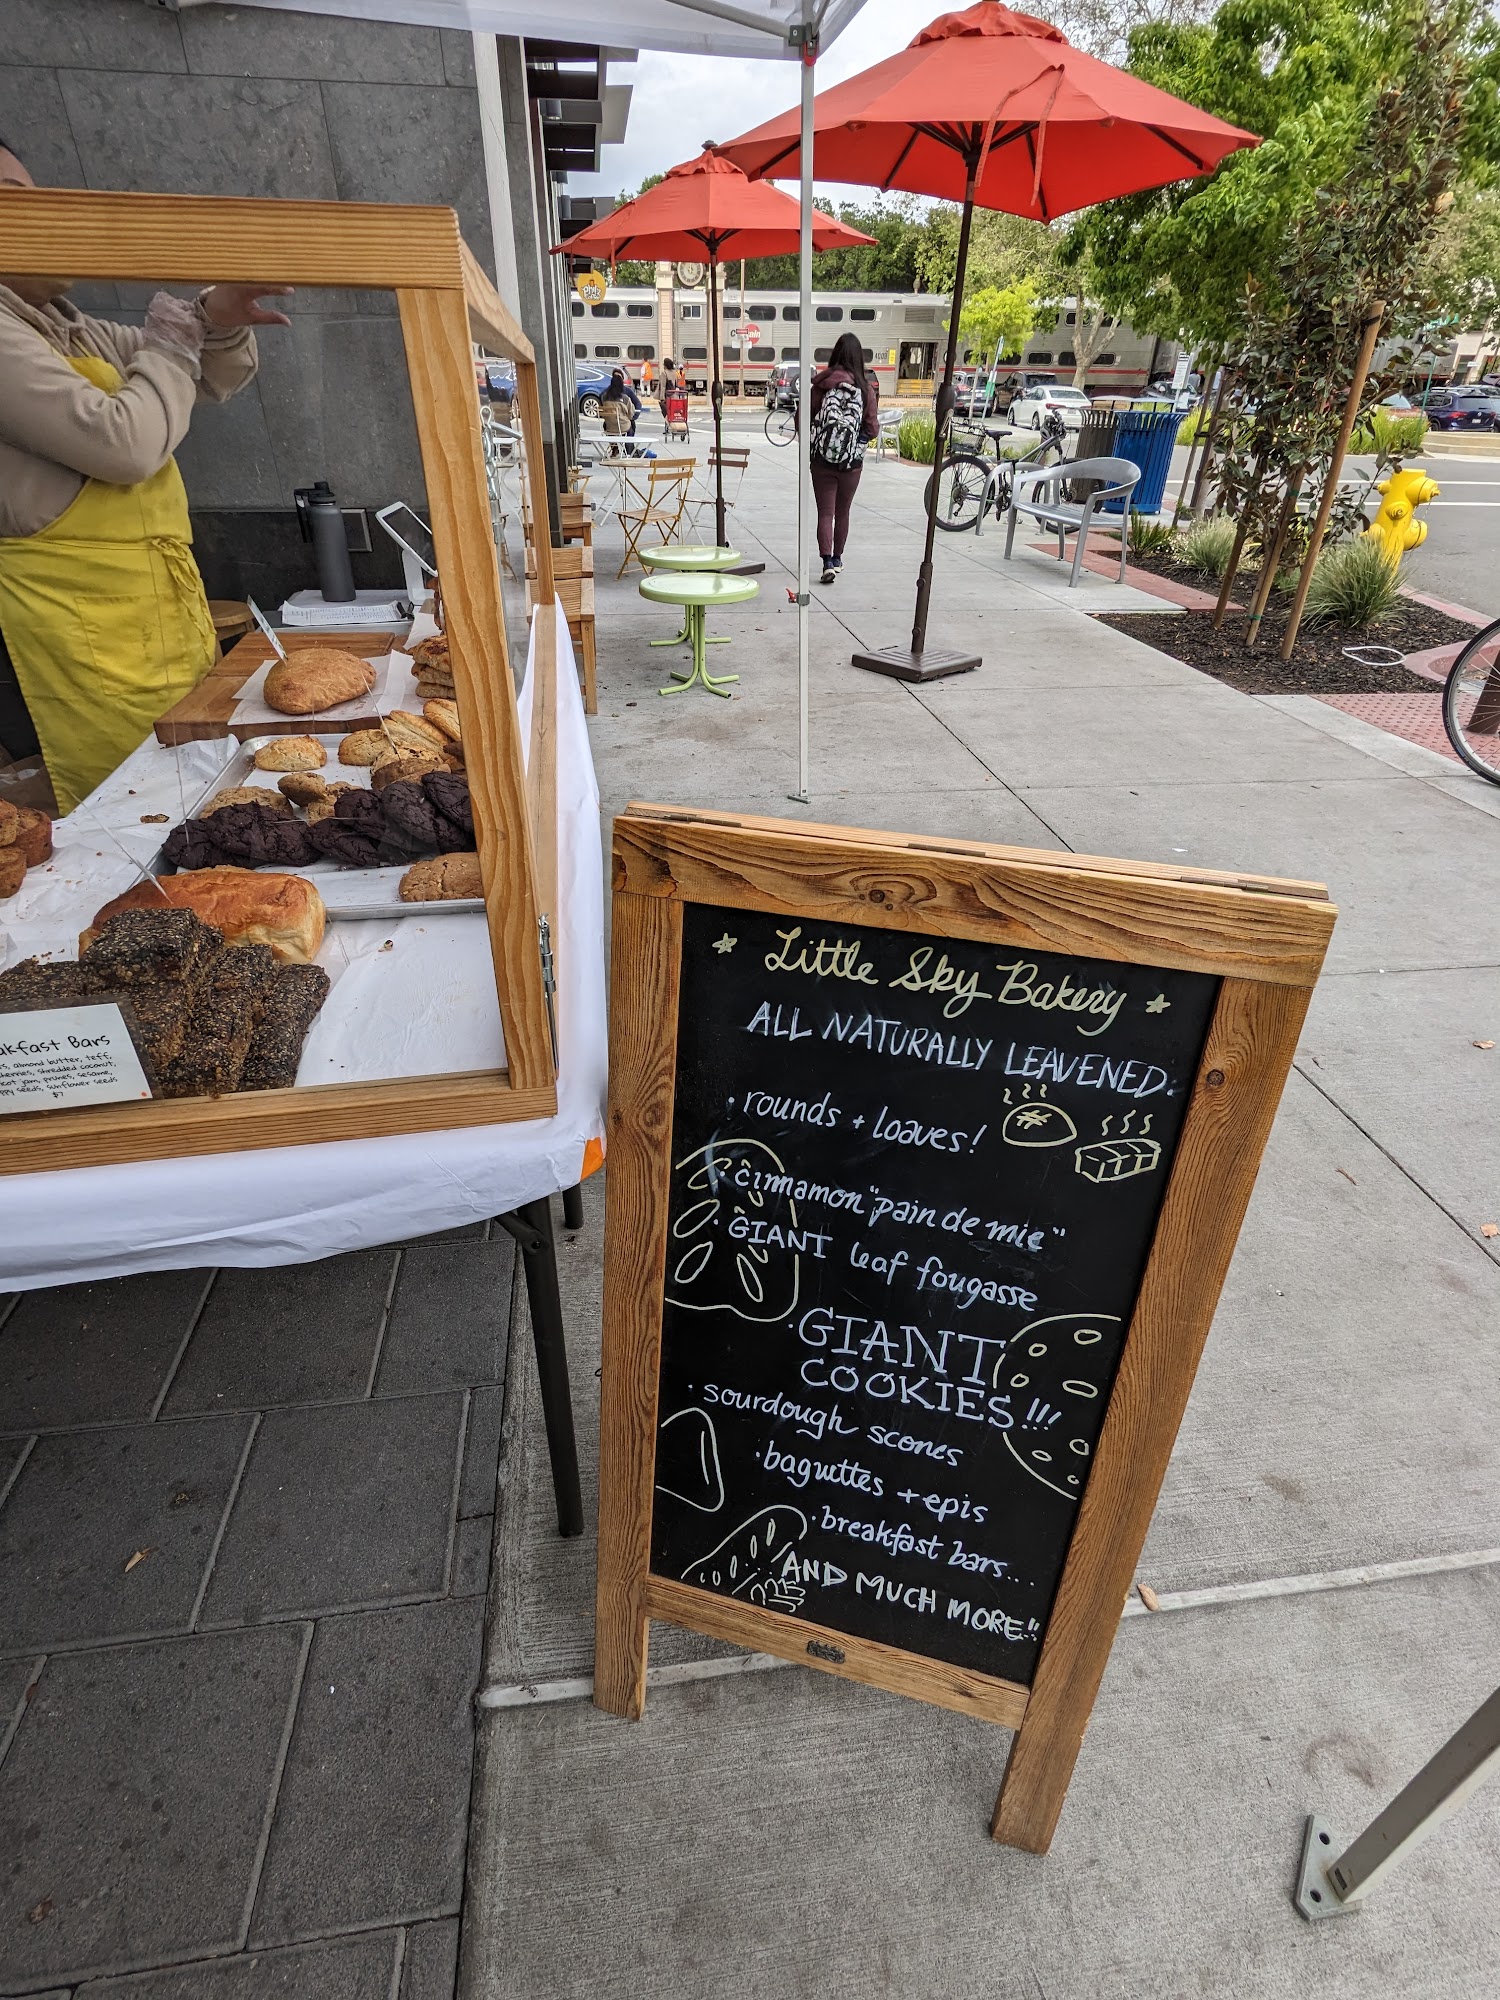 Philz
Caltrain
4008
★ Little Sky Bakery ★
ALL NATURALLY LEAVENED:
· rounds + loaves!
· cinnamon "pain de mie"
· GIANT leaf fougasse
· GIANT
COOKIES!!!
· sourdough scones
· baguettes + epis
· breakfast bars...
AND MUCH MORE"
akfast Bars
s, almond butter, teff,
erries, shredded coconut,
cot jam, prunes, sesame,
py seeds, sunflower seeds
$7